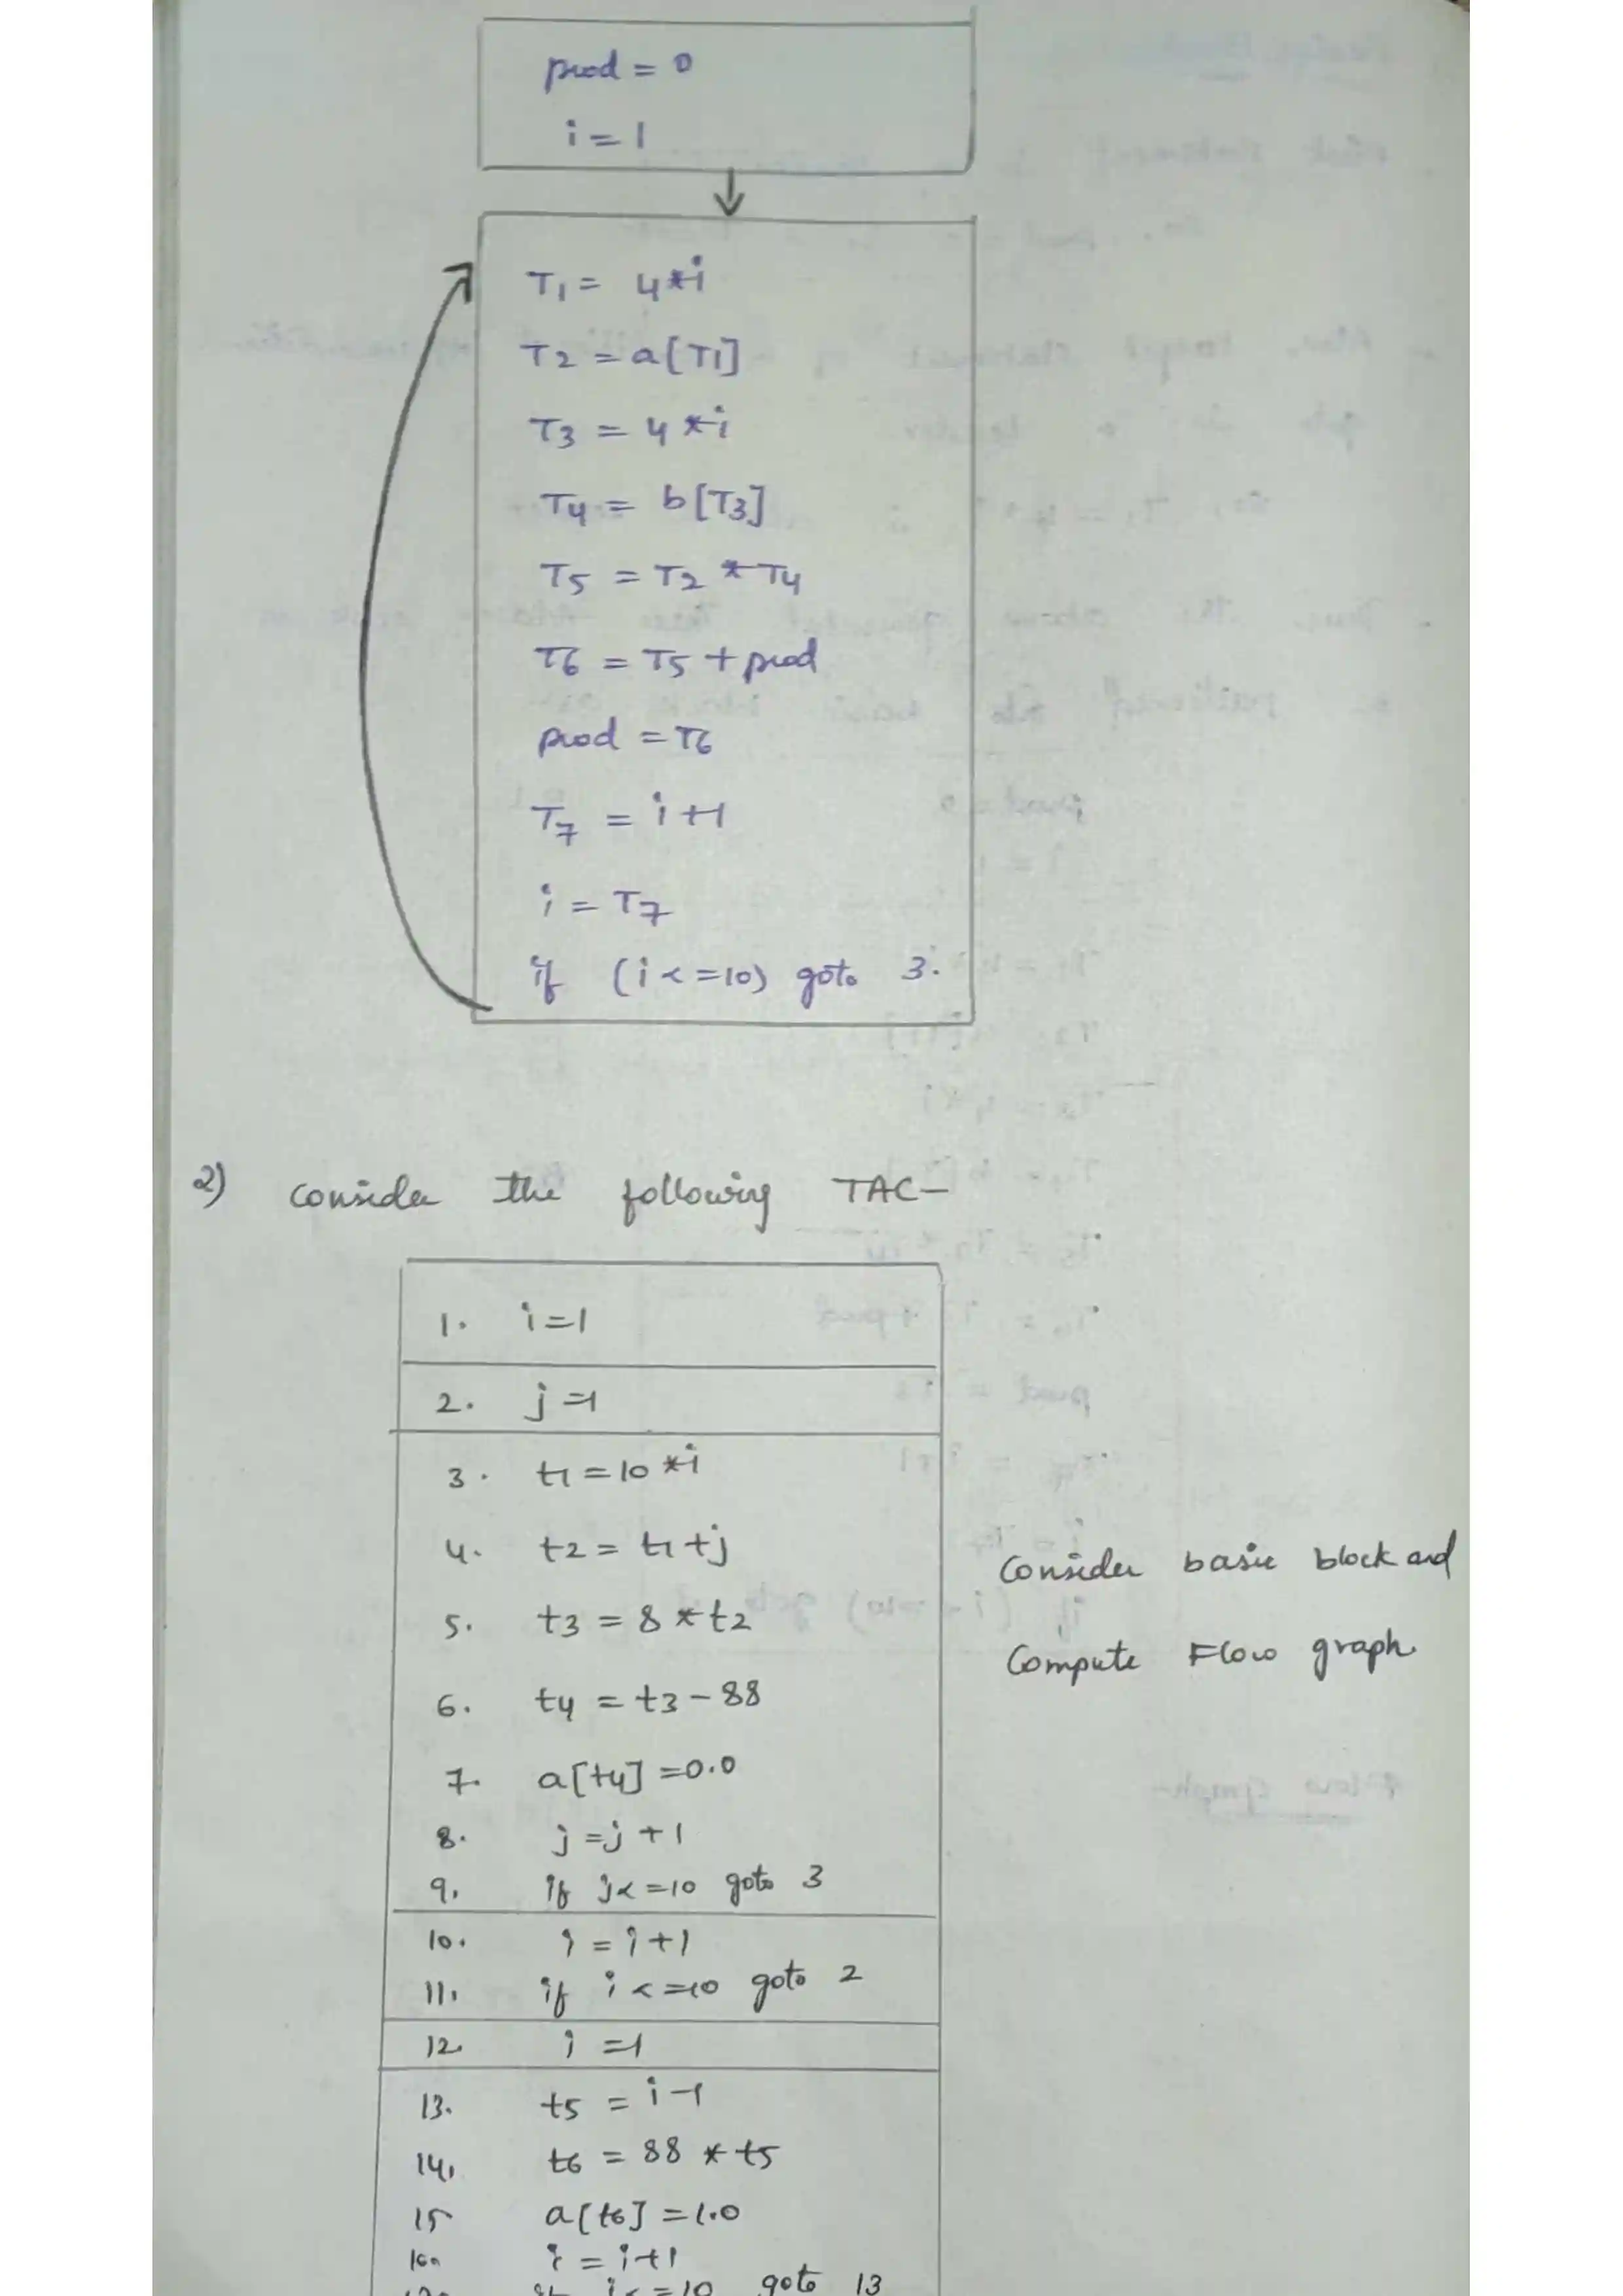 prod = 0
i = 1
T1 = 4*i
T2 = a[T1]
T3 = 4*i
T4 = b[T3]
T5 = T2 * T4
T6 = T5 + prod
prod = T6
T7 = i+1
i = T7
if (i<=10) goto 3.
2) Consider the following TAC-
1. i=1
2. j=1
3. t1 = 10*i
4. t2 = t1+j
5. t3 = 8*t2
6. t4 = t3-88
7. a[t4] = 0.0
8. j = j+1
9. if j<=10 goto 3
Consider basic block and
Compute Flow graph.
10. i = i+1
11. if i<=10 goto 2
12. i = 1
13. t5 = i-1
14. t6 = 88 * t5
15 a[t6] = 1.0
16. i = i+1
if i<=10 goto 13